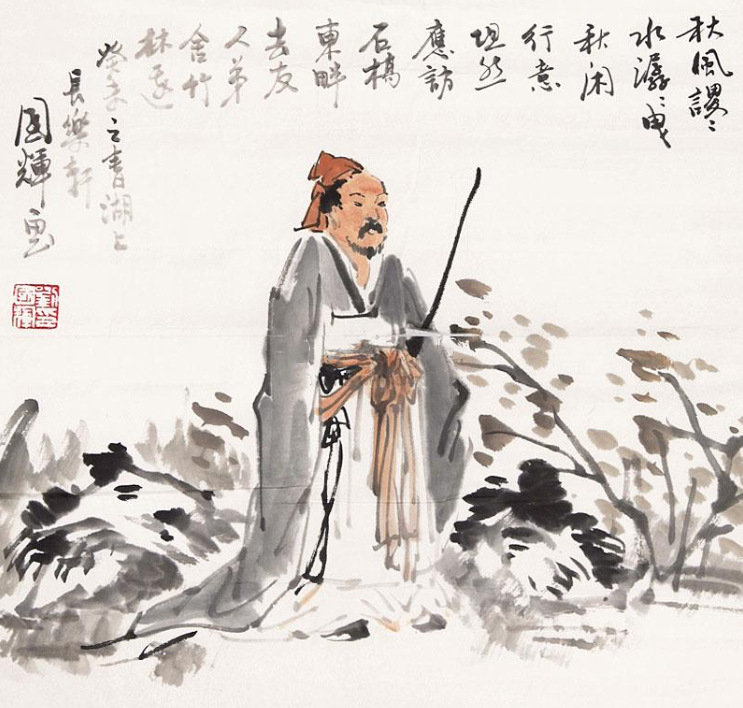 秋風謖〻
水潺〻曳
杖闲
行意
坦然
應訪
石橋
東畔
去友
人茅
舍竹
林邊
癸未之春湖上
長樂軒
國輝畫
劉印
國輝